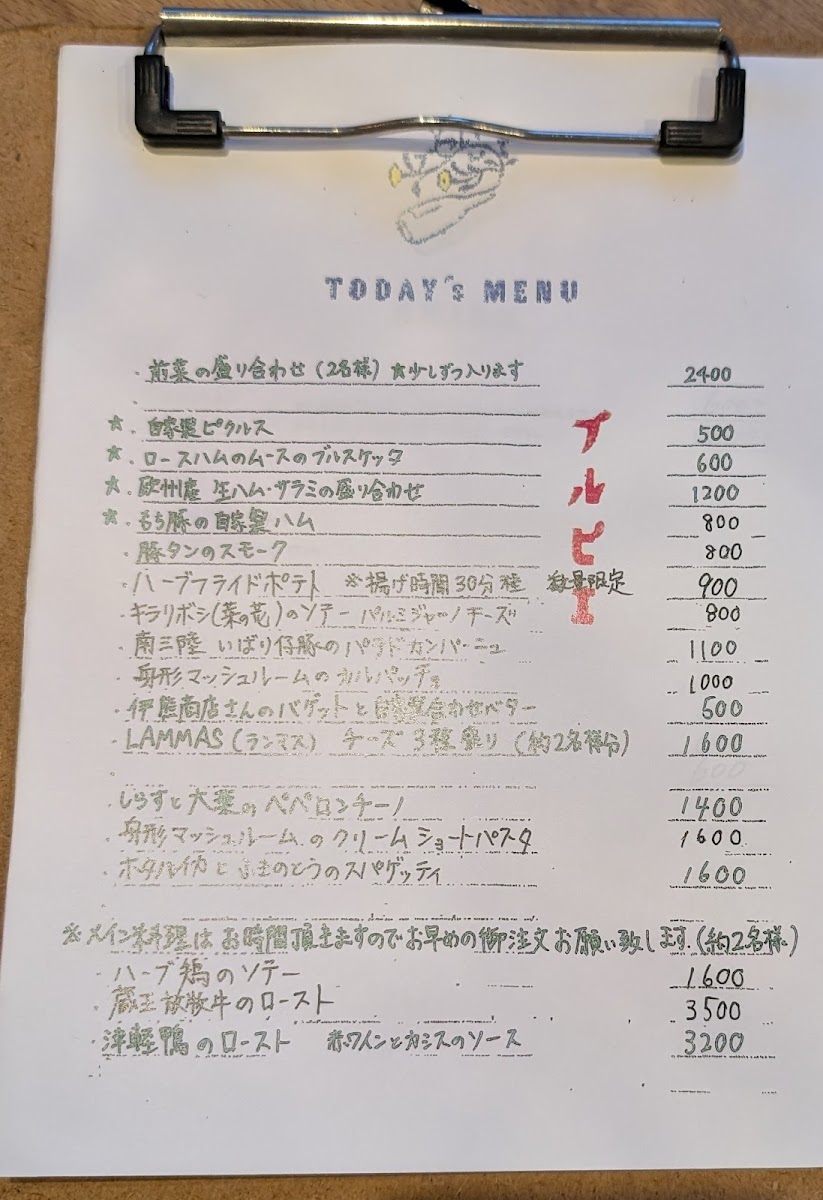 TODAY's MENU
・前菜の盛り合わせ(2名様) ★少しずつ入ります 2400
★・自家製ピクルス 500
★・ロースハムのムースのブルスケッタ 600
★・欧州産 生ハム・サラミの盛り合わせ 1200
★・もち豚の自家製ハム 800
・豚タンのスモーク 800
・ハーブフライドポテト ※揚げ時間30分程 数量限定 900
・キラリボシ(菜の花)のソテー パルミジャーノチーズ 800
・南三陸 いばり仔豚のパテドカンパーニュ 1100
・舟形マッシュルームのカルパッチョ 1000
・伊熊商店さんのバゲットと自家製合わせバター 500
・LAMMAS(ランマス) チーズ3種盛り (約2名様分) 1600
・しらすと大葉のペペロンチーノ 1400
・舟形マッシュルームのクリームショートパスタ 1600
・ホタルイカとふきのとうのスパゲッティ 1600
※メイン料理はお時間頂きますのでお早めの御注文お願い致します.(約2名様)
・ハーブ鶏のソテー 1600
・蔵王放牧牛のロースト 3500
・津軽鴨のロースト 赤ワインとカシスのソース 3200
プルピエ